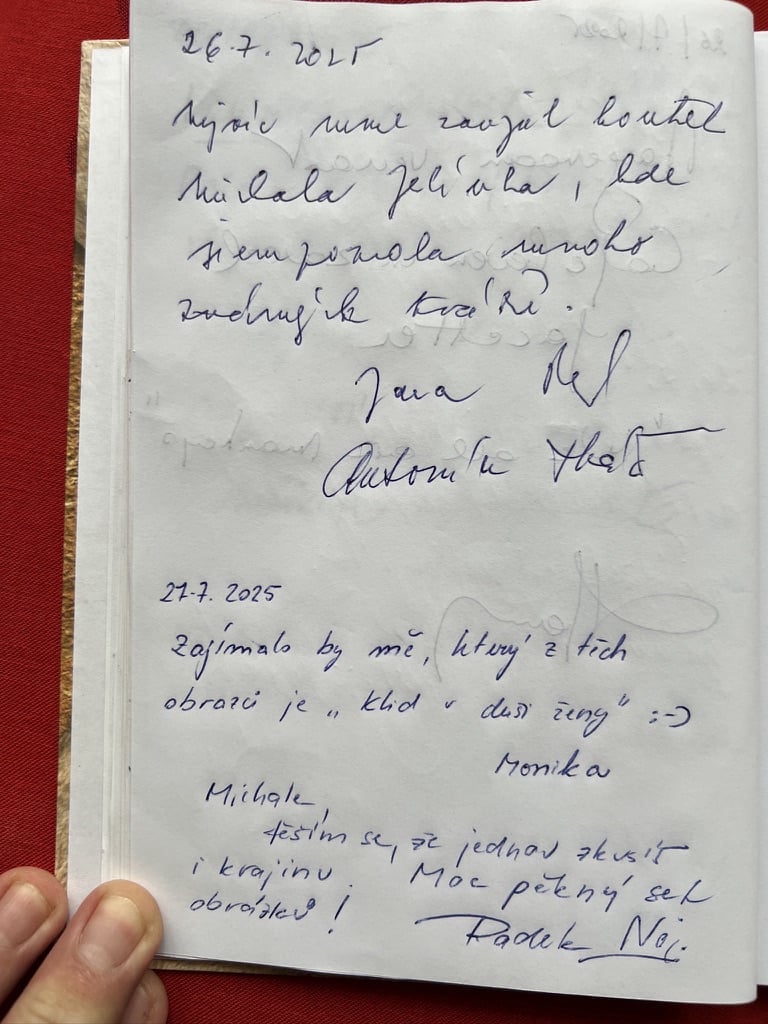 26.7. 2025
Nejvíc mne zaujal koutek
Michala Jelínka, kde
jsem poznala mnoho
zdejších tváří.
Jana
Antonín
27.7. 2025
Zajímalo by mě, který z těch
obrazů je „Klid v duši ženy“ :-)
Monika
Michale,
těším se, že jednou zkusíš
i krajinu. Moc pěkný set
obrázků!
Radek